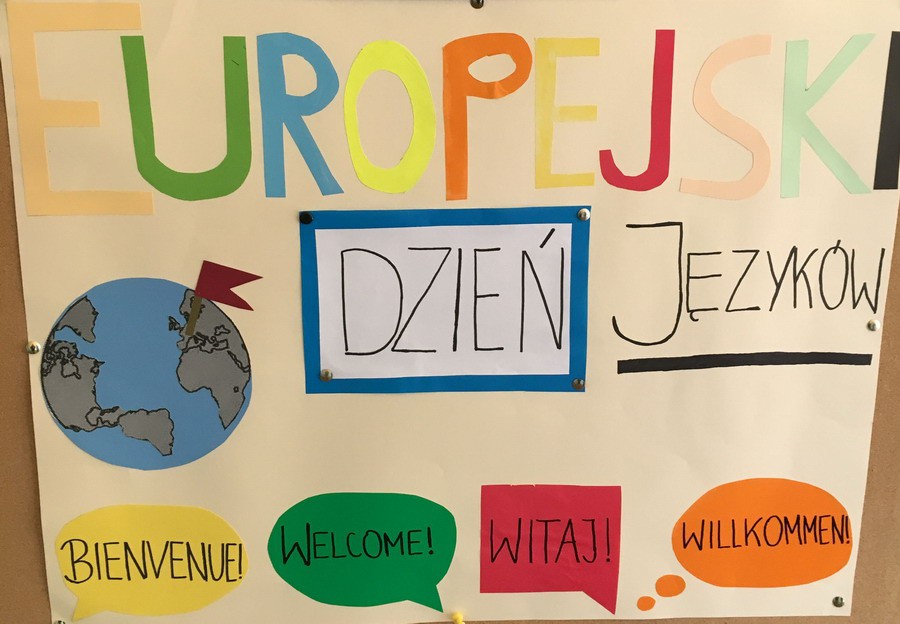 EUROPEJSKI
DZIEŃ JĘZYKÓW
BIENVENUE! WELCOME! WITAJ! WILLKOMMEN!